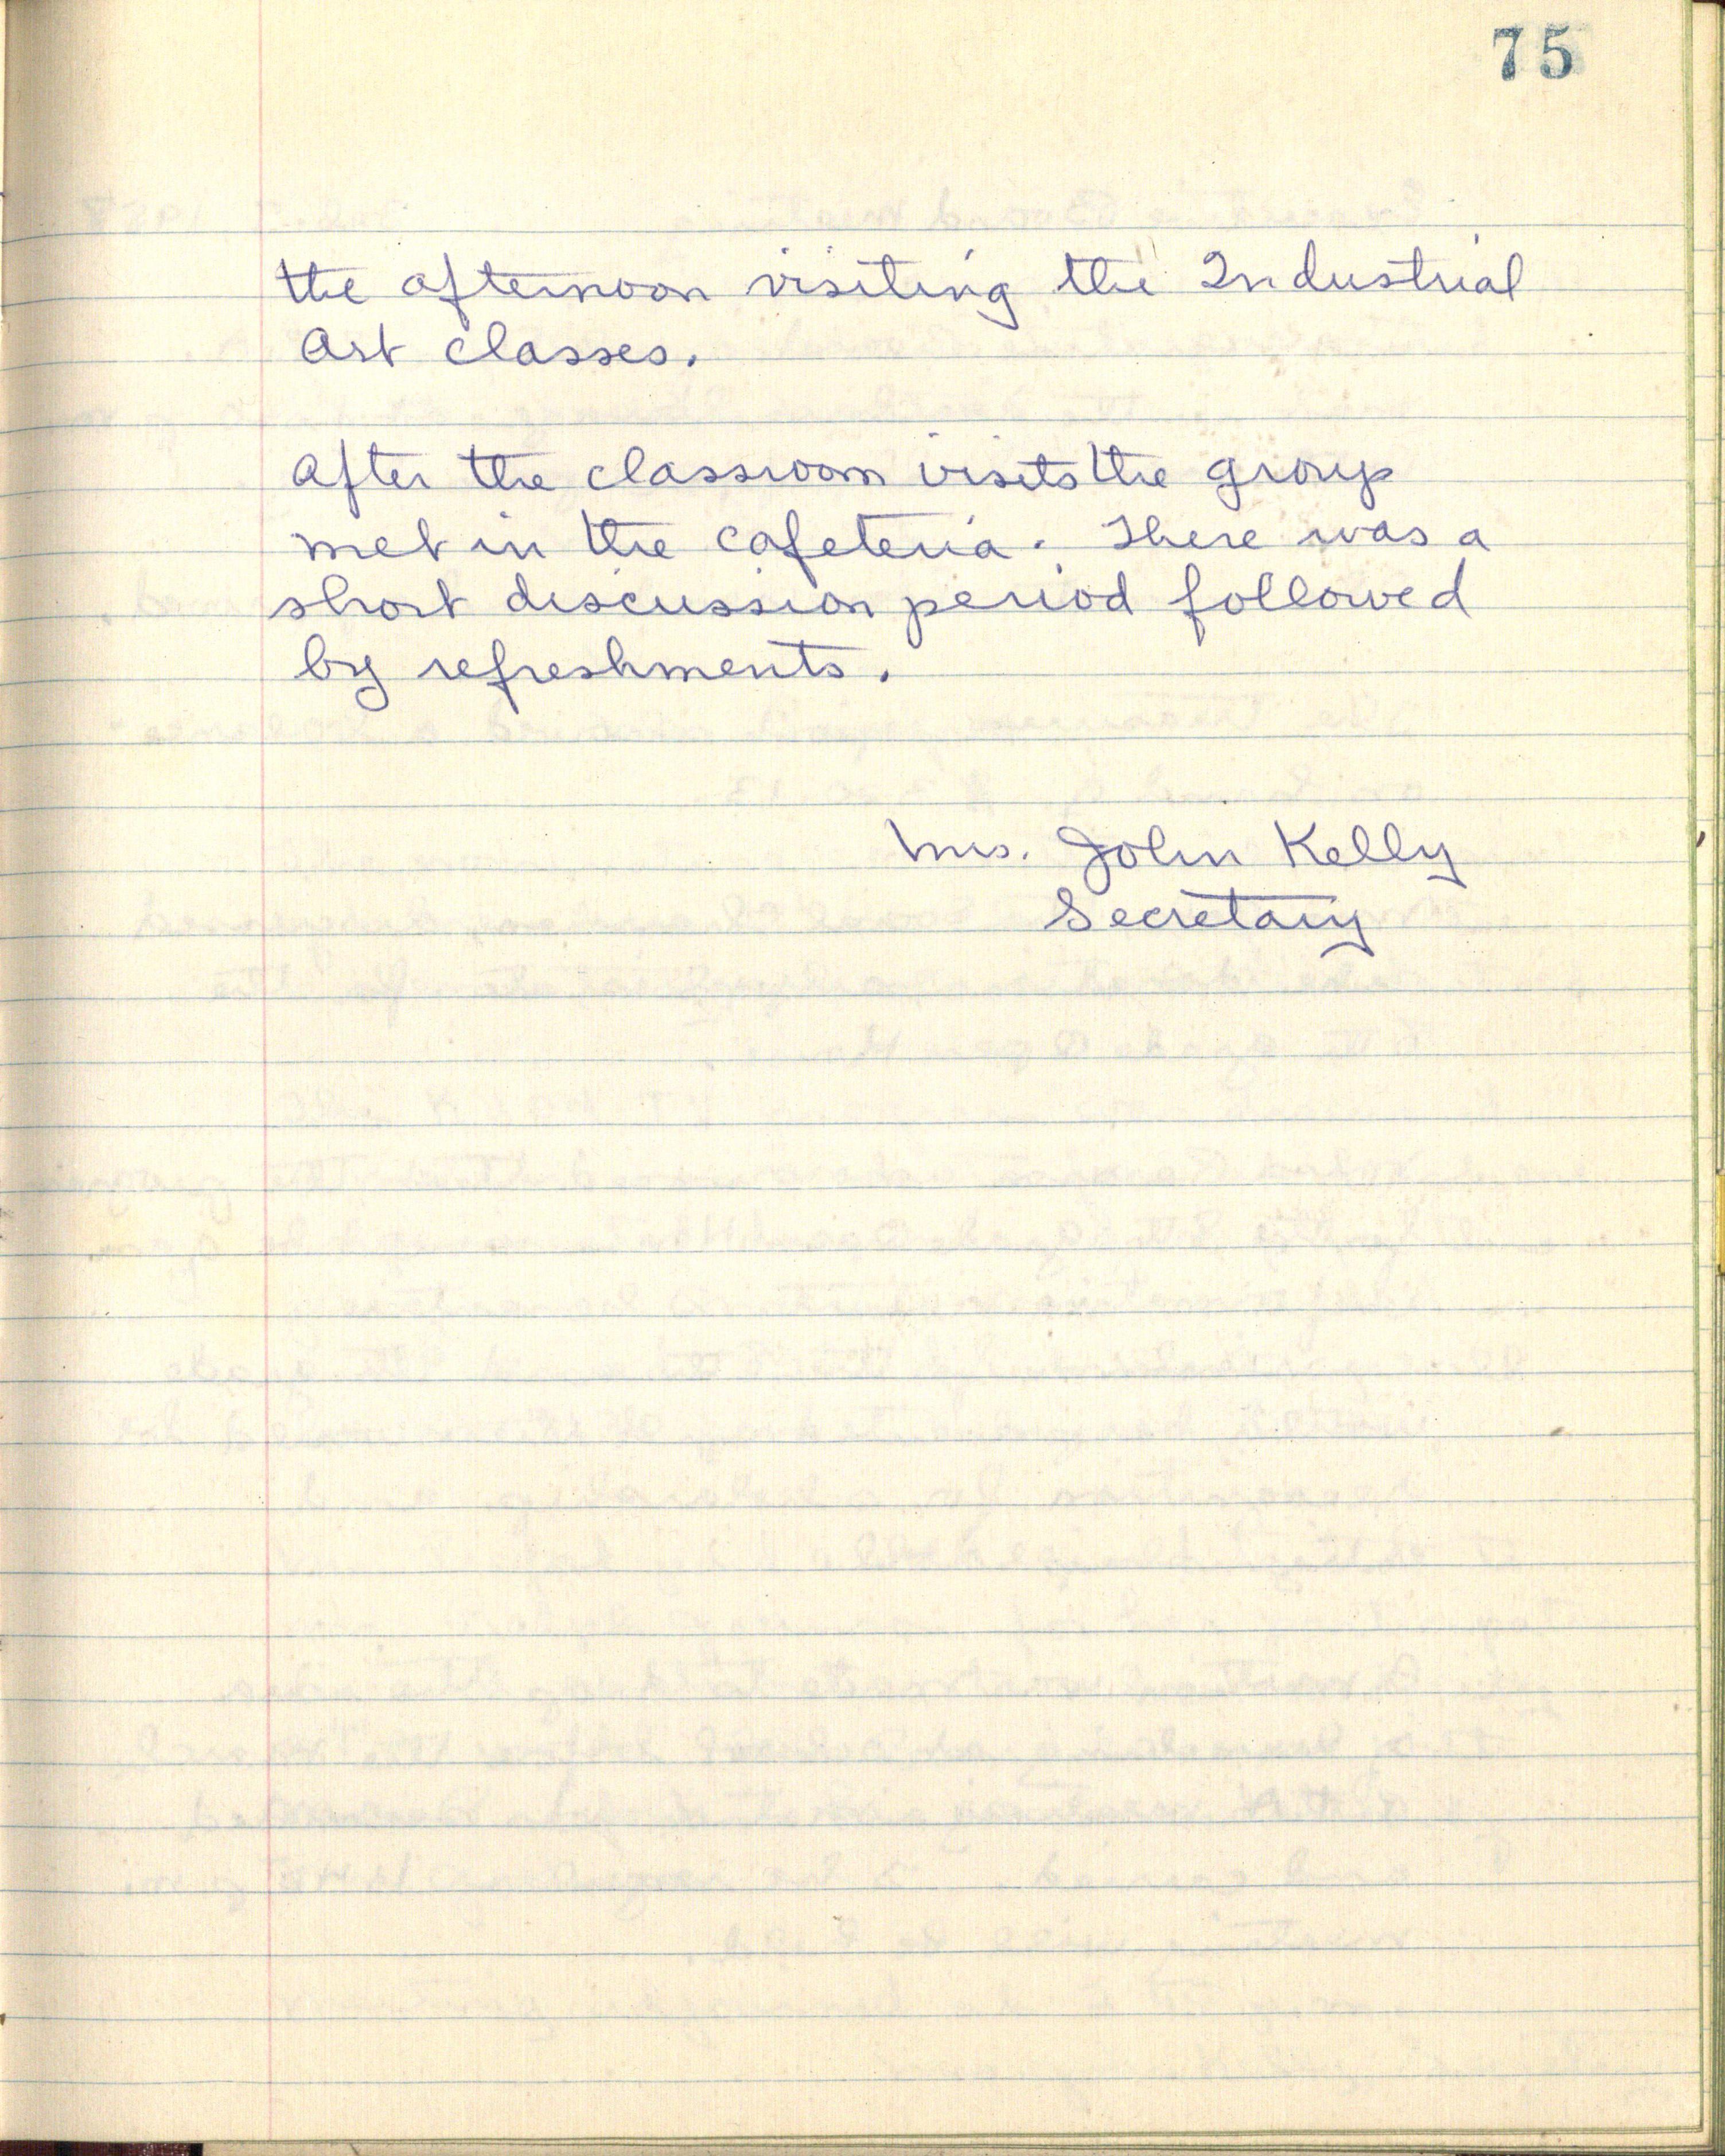 75
the afternoon visiting the Industrial
Art classes.
After the classroom visits the group
met in the cafeteria. There was a
short discussion period followed
by refreshments.
Mrs. John Kelly
Secretary